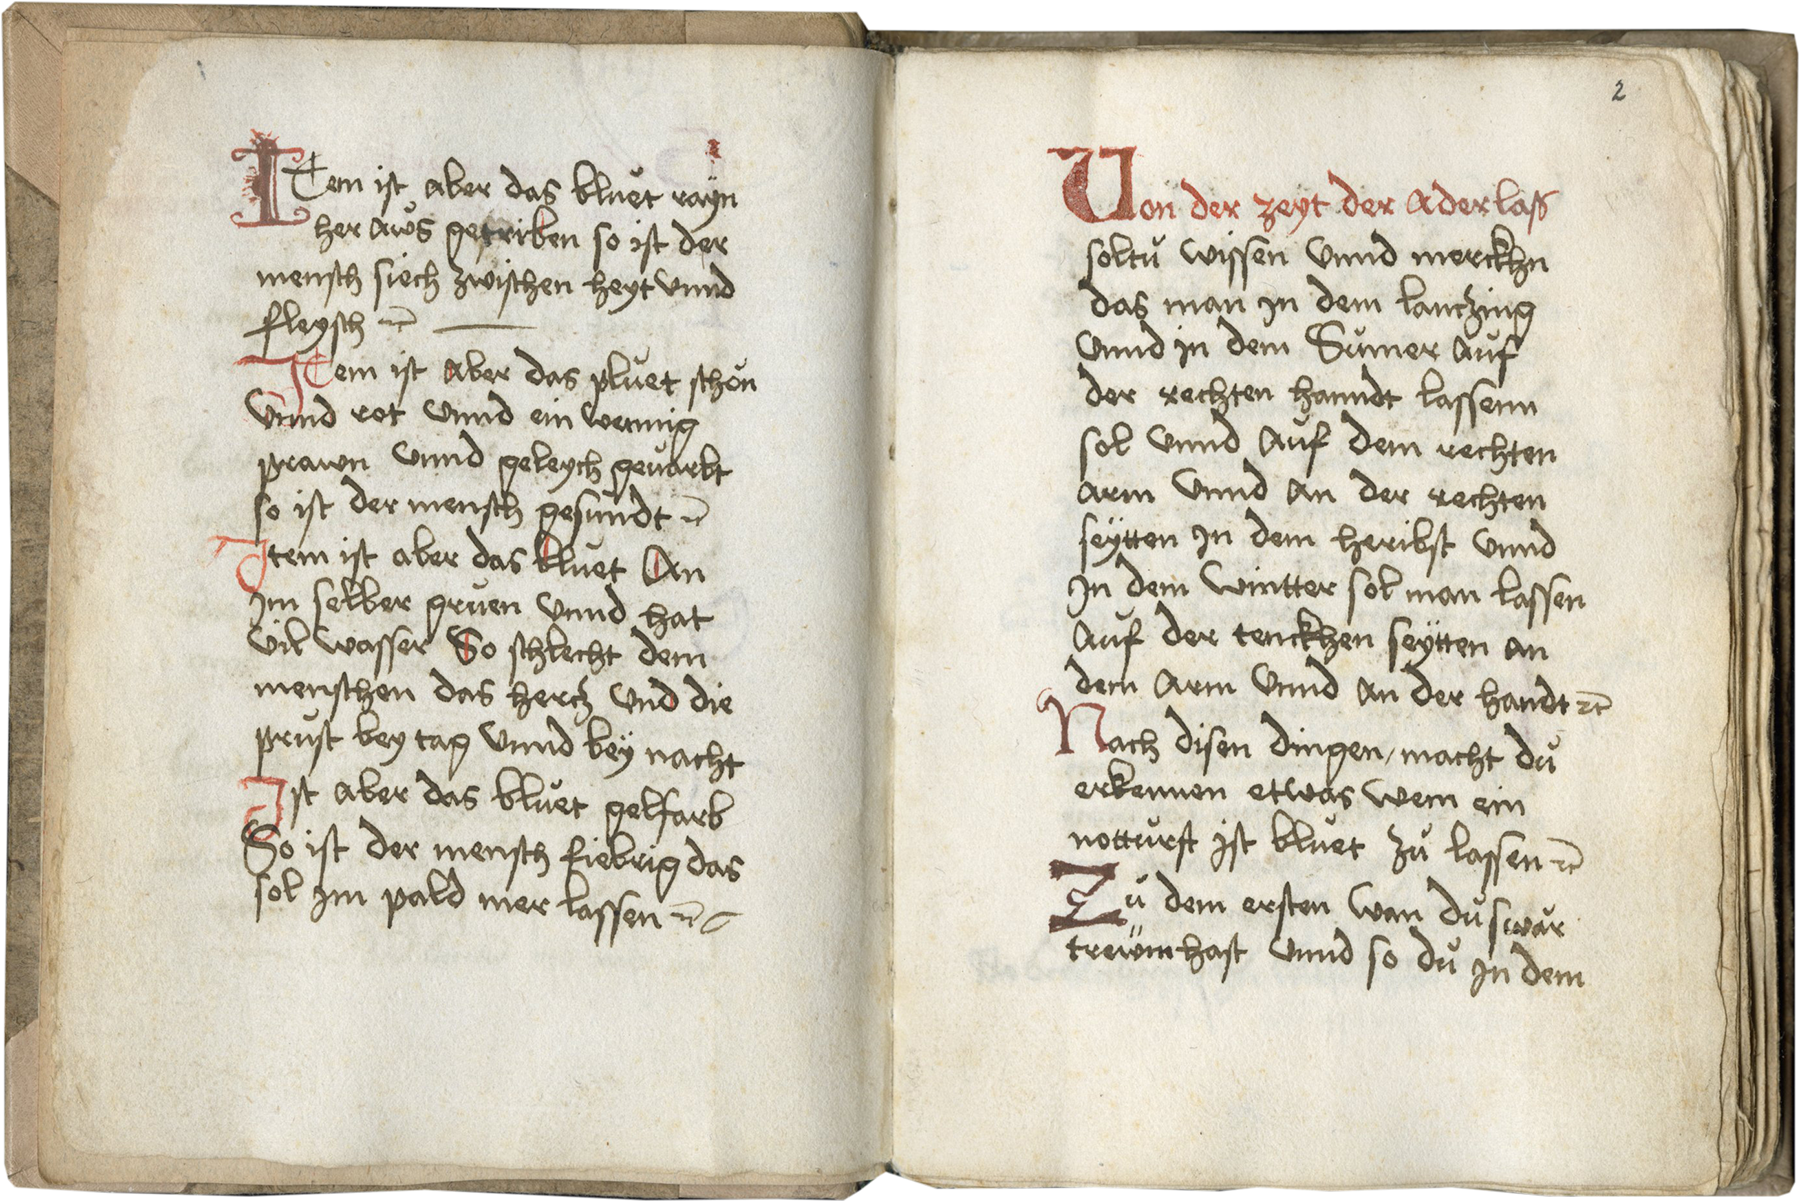 Item ist aber das bluet rayn
her aws getriben so ist der
mensch siech zwischen heyt vnnd
fleysch ⁊c̄
Item ist aber das pluet schon
vnnd rot vnnd ein wennig
prawn vnnd geleych geuarbt
so ist der mensch gesundt ⁊c̄
Item ist aber das bluet An
im selber gruen vnnd hat
vil wasser So schlecht dem
menschen das hercz vnd die
prust bey tag vnnd beÿ nacht
Ist aber das bluet gelfarb
So ist der mensch fiebrig das
sol im pald mer lassen ⁊c̄
2
Von der zeyt der Aderlass
soltu wissen vnnd merckhn
das man in dem lanczing
vnnd in dem Sumer auf
der rechten hanndt lassenn
sol vnnd auf dem rechten
arm vnnd an der rechten
seÿtten in dem heribst vnnd
in dem wintter sol man lassen
auf der tenckhen seÿtten an
dem arm vnnd an der handt ⁊c̄
Nach disen dingen / macht du
erkennen etwas wem ein
notturft ist bluet zu lassen ⁊c̄
Zu dem ersten wan du swar
trewm hast vnnd so du in dem